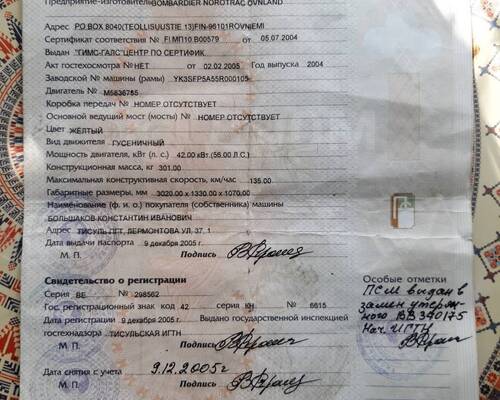 Предприятие-изготовитель BOMBARDIER NORDTRAC OYNLAND
Адрес PO.BOX 8040(TEOLLISUUSTIE 13)FIN-96101ROVNIEMI
Сертификат соответствия № FI.МП10.B00579 от 5.07.2004
Выдан "ГИМС-ГАЛС"ЦЕНТР ПО СЕРТИФИК.
Акт гостехосмотра №НЕТ от 02.02.2005 Год выпуска 2004
Заводской № машины (рамы) YK3SFP5A55R000105
Двигатель № M5836785
Коробка передач № НОМЕР ОТСУТСТВУЕТ
Основной ведущий мост (мосты) № НОМЕР.ОТСУТСТВУЕТ
Цвет ЖЕЛТЫЙ
Вид движителя ГУСЕНИЧНЫЙ
Мощность двигателя, кВт (л. с.) 42.00 кВт.(56.00 Л.С.)
Конструкционная масса, кг 301.00
Максимальная конструктивная скорость, км/час 135.00
Габаритные размеры, мм 3020.00 x 1330.00 x 1070.00
Наименование (ф. и. о.) покупателя (собственника) машины
БОЛЬШАКОВ КОНСТАНТИН ИВАНОВИЧ
Адрес ТИСУЛЬ ПГТ, ЛЕРМОНТОВА УЛ. 37, 1
Дата выдачи Паспорта 9 декабря 2005 г.
М. П. Подпись
Свидетельство о регистрации
Серия ВЕ № 298562
Гос. регистрационный знак код 42 серия КН № 6615
Дата регистрации 9 декабря 2005 г. Выдано государственной инспекцией
гостехнадзора ТИСУЛЬСКАЯ ИГТН
М. П. Подпись
Дата снятия с учета 9.12.2005г
М. П. Подпись
Особые отметки
ПСМ выдан в
замен утерян-
ного ВВ 340175
Нач. ИГТН